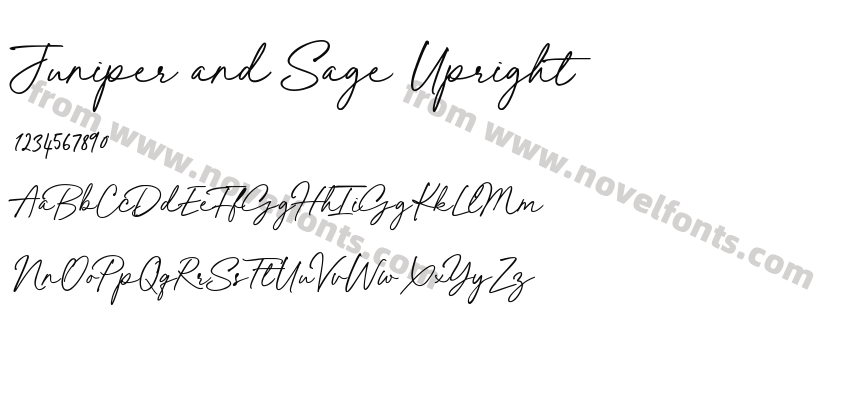 Juniper and Sage Upright
from www.novelfonts.com
from www.novelfonts.com
1234567890
AaBbCcDdEeFfGgHhIiGgKkLlMm
NnOoPpQqRrSsTtUuVvWwXxYyZz